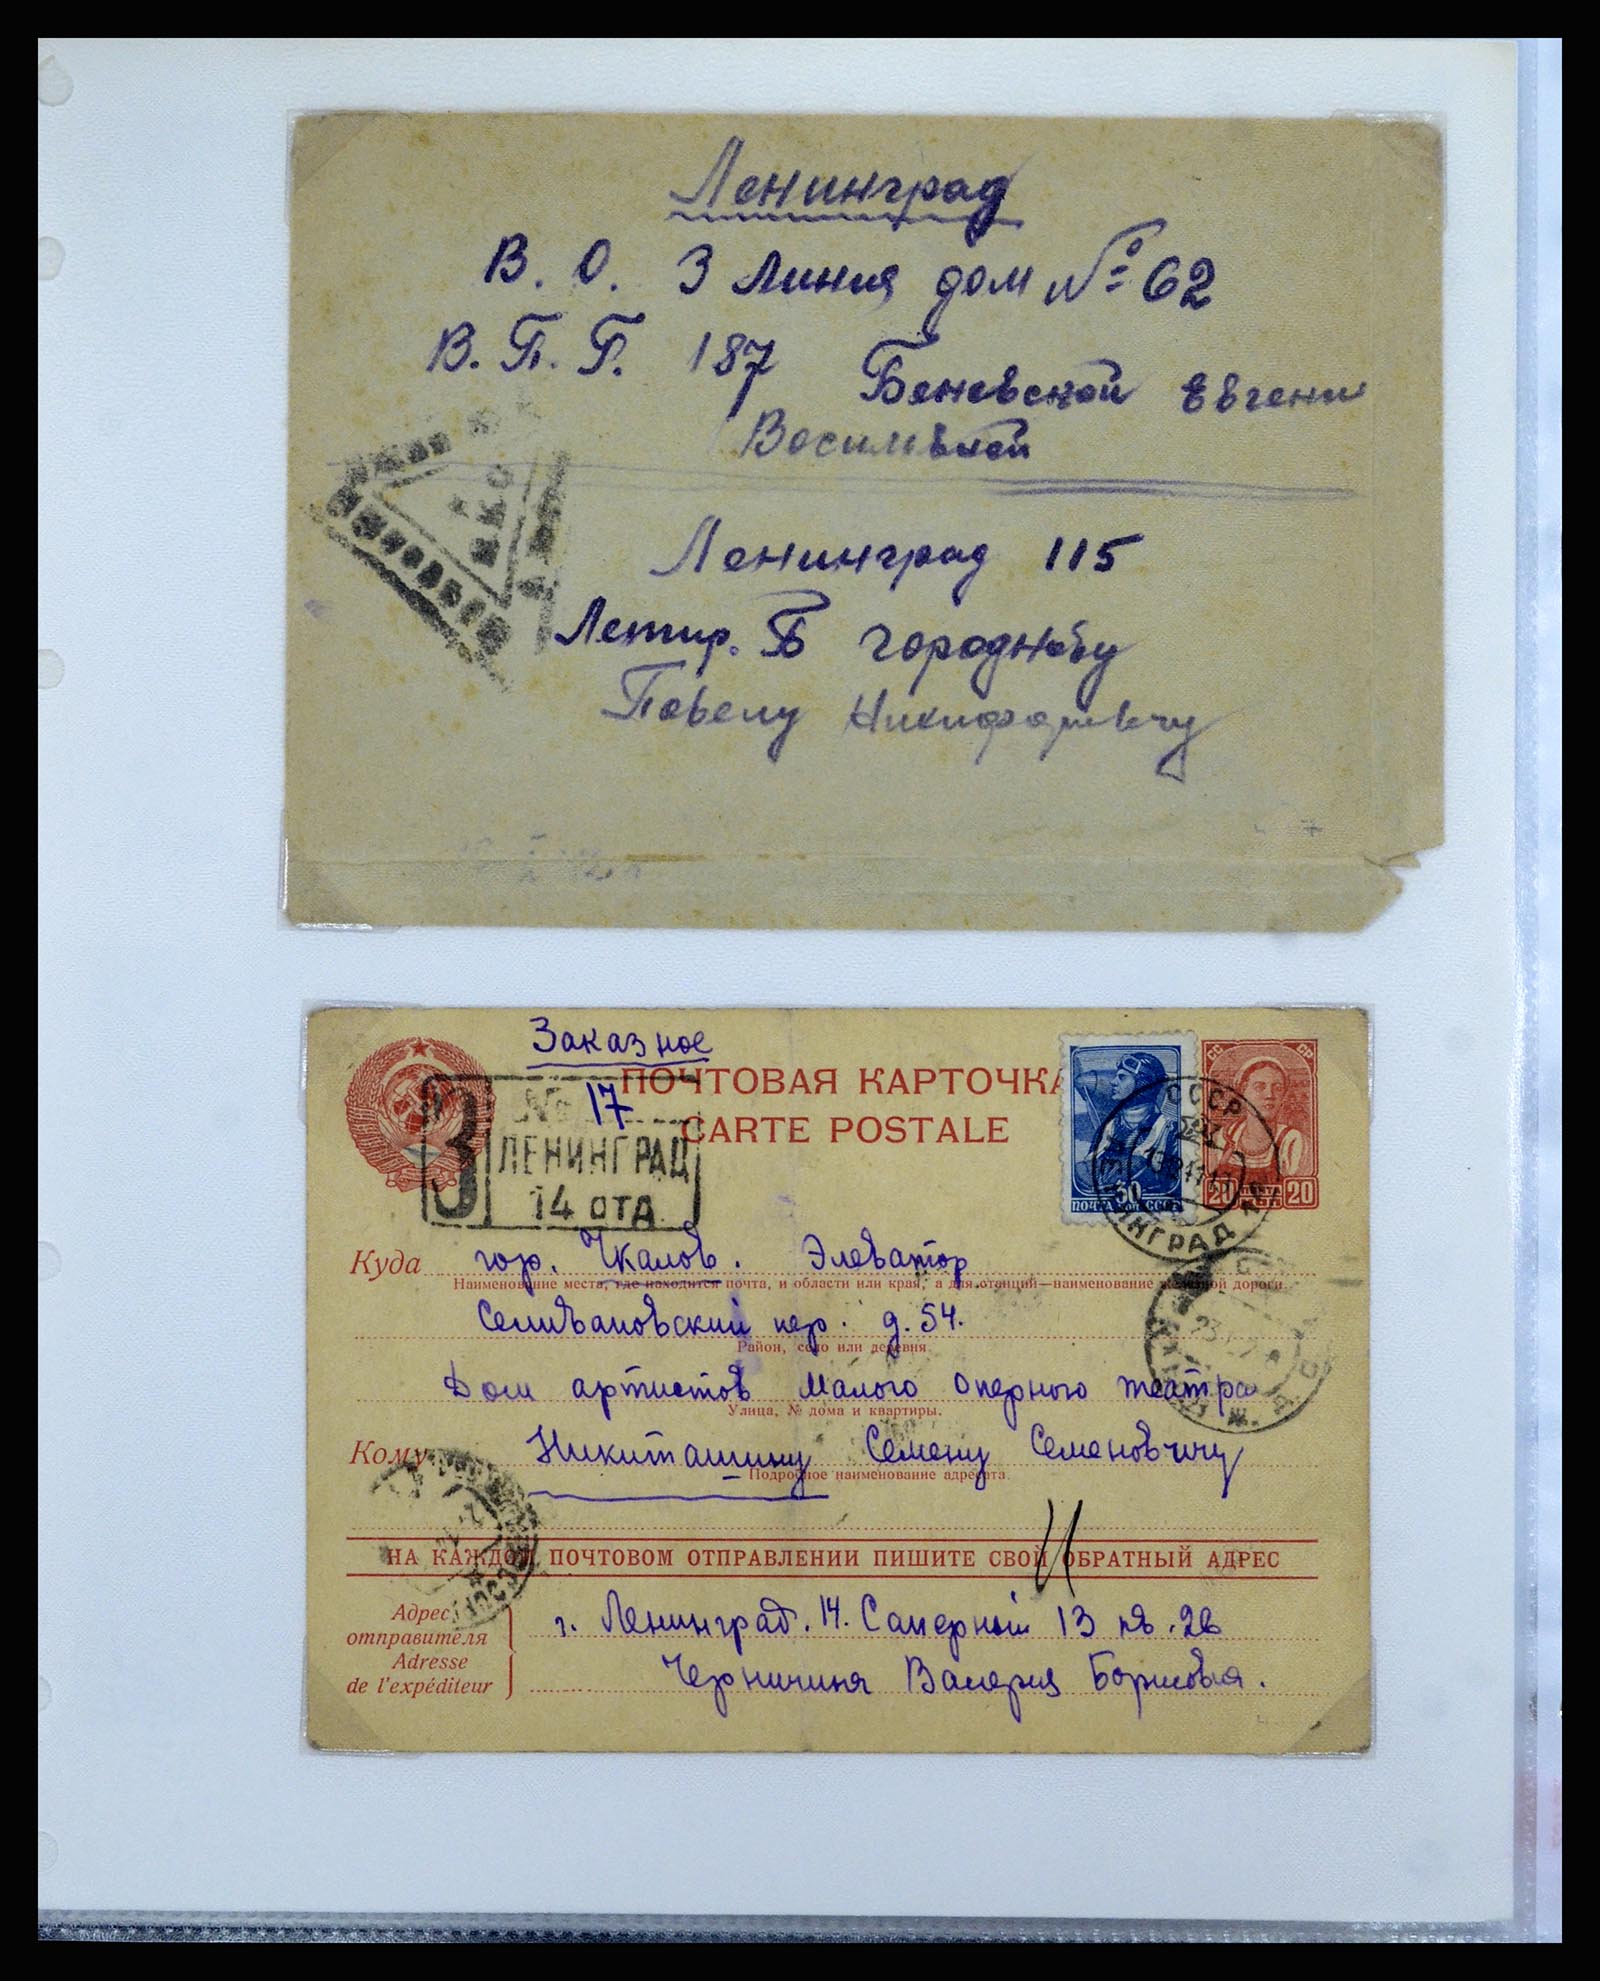 Ленинград
В. О. 3 Линия дом № 62
В. П. Г. 187 Беневской Евгени
Ленинград 115
Литир. Б городнёву
Павелу Никифоровичу
Заказное
ПОЧТОВАЯ КАРТОЧКА
CARTE POSTALE
СС СР
№ 17
З ЛЕНИНГРАД
14 ОТД.
30
ПОЧТА СССР
20 20
СССР
ЛЕНИНГРАД
Куда гор. Чкалов. Элеватор
Наименование места, где находится почта, и области или края, а для станций—наименование железной дороги.
Селивановский пер. д. 54.
Район, село или деревня.
Дом артистов Малого Оперного театра
Улица, № дома и квартиры.
Кому Никиташину Семену Семеновичу
Подробное наименование адресата.
НА КАЖДОМ ПОЧТОВОМ ОТПРАВЛЕНИИ ПИШИТЕ СВОЙ ОБРАТНЫЙ АДРЕС
Адрес отправителя
Adresse de l'expéditeur
г. Ленинград. 14. Саперный 13 кв. 26
Валерия Борисовна.